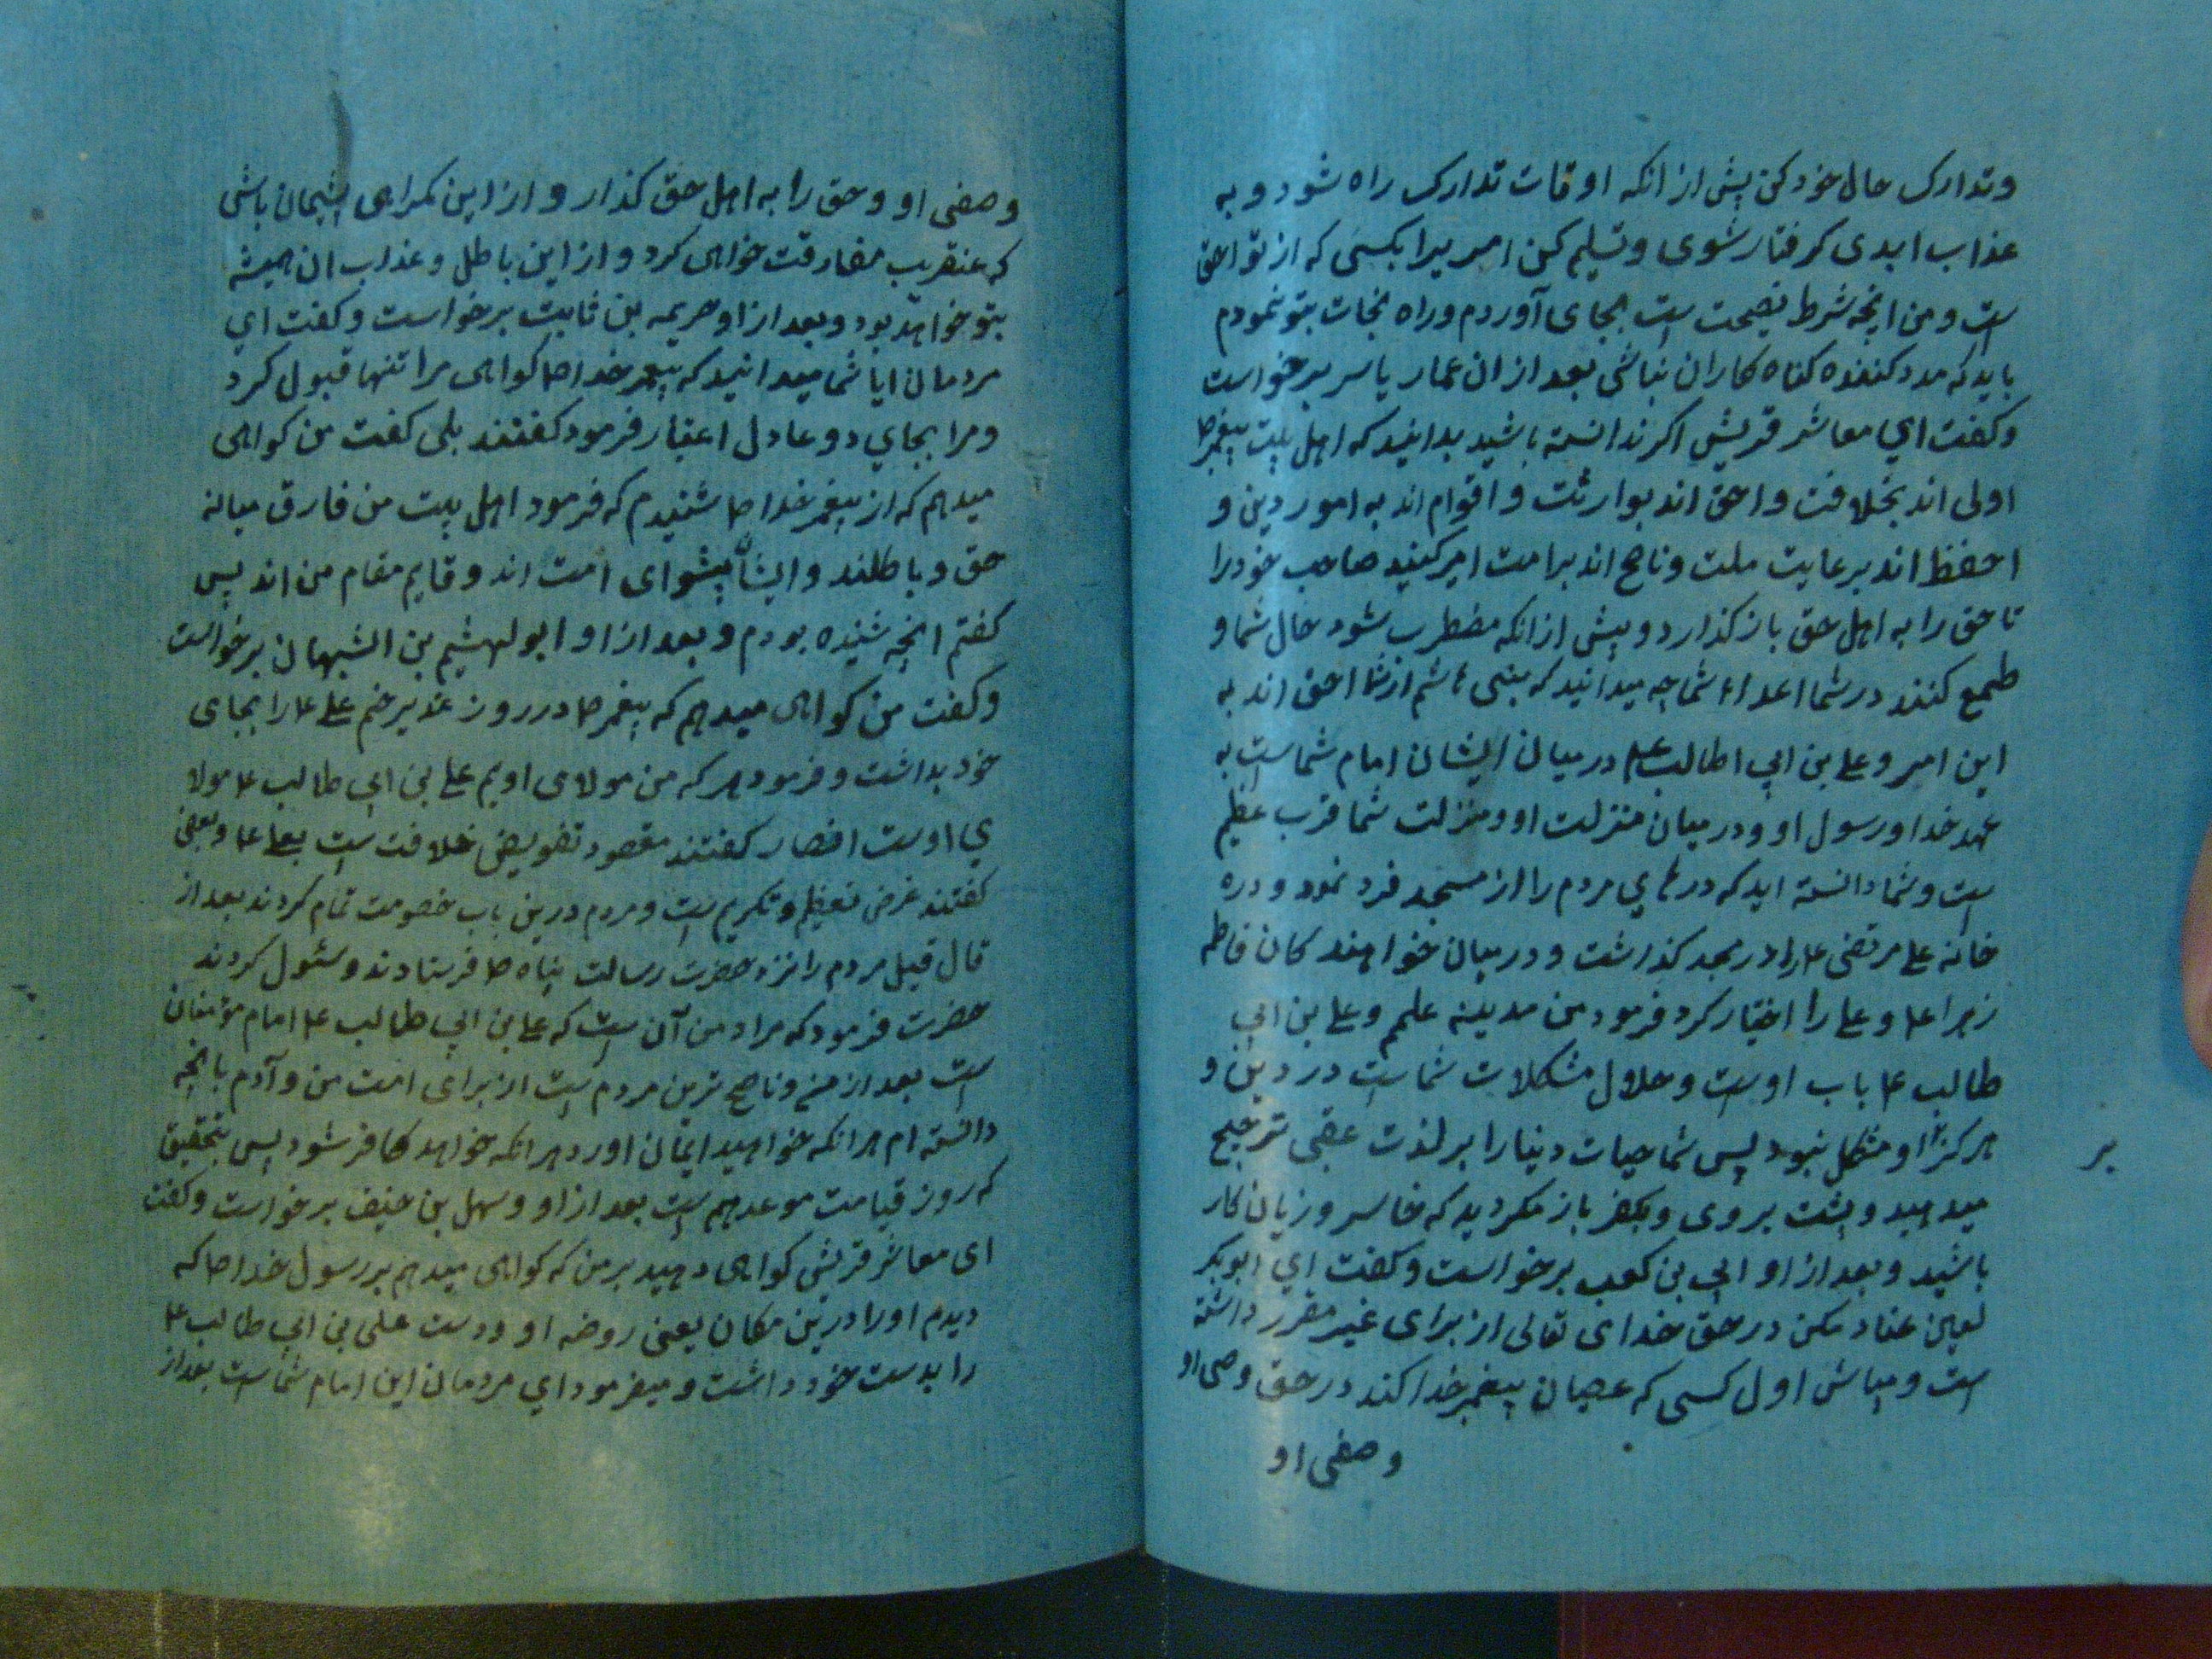 وتدارک حال خود کن پیش از انکه اوقات تدارک راه شود و به
عذاب ابدی کرفتار شوی و تسلیم کن امر یرا بکسی که از تو احق
است و من انچه شرط نصیحت است بجای آوردم و راه نجات بتو نمودم
باید که مدد کننده کناه کاران نباشی بعد ازان عمار یاسر برخواست
و کفت ای معاشر قریش اکر ندانسته باشید بدانید که اهل بیت پیغمبر ص
اولی اند بخلافت و احق اند بوارثت و اقوام اند به امور دین و
احفظ اند برعایت ملت و ناصح اند برامت امیر کنید صاحب خودرا
تا حق را به اهل حق باز کذارد و پیش ازانکه مضطرب شود حال شما و
طمع کنند در شما اعداء شما چه میدانید که بنی هاشم از شما احق اند به
این امر و علی بن ابی اطالب ع در میان ایشان امام شماست به
عهد خدا و رسول او و در میان منزلت او و منزلت شما قرب عظیم
است و شما دانسته اید که درهای مردم را از مسجد فرد نمود و دره
خانه علی مرتضی ع را در مجد کذاشت و در میان خواهند کان فاطمه
زهرا ع و علی را اختیار کرد فرمود من مدینه علمم و علی بن ابی
طالب ع باب اوست و حلال مشکلات شماست در دین و
هرکز او مشکل نبود پس شما حیات دنیا را بر لذت عقبی ترجیح
بر
میدهید و پشت بروی و بکفر باز مکردید که خاسر و زیان کار
باشید و بعد از او ابی بن کعب برخواست و کفت ای ابوبکر
لعین عناد مکن در حق خدای تعالی از برای غیر مقرر داشته
است و مباش اول کسی که عصیان پیغمبر خدا کند در حق وصی او
وصفی او
وصفی او و حق را به اهل حق کذار و از این کمراهی پشیمان باشی
که عنقریب مفارقت خواهی کرد و از این باطل و عذاب ان همیشه
بتو خواهد بود و بعد از او حریمه بن ثابت برخواست و کفت ای
مردمان ایا شما میدانید که پیغمبر خدا ص کواهی مرا تنها قبول کرد
ومرا بجای دو عادل اعتبار فرمود کفتند بلی کفت من کواهی
میدهم که از پیغمبر خدا ص شنیدم که فرمود اهل بیت من فارق میانه
حق و باطلند و ایشان پیشوای امت اند و قایم مقام من اند پس
کفتم انچه شنیده بودم و بعد از او ابولهشیم بن الشیهان برخواست
وکفت من کواهی میدهم که پیغمبر ص در روز غدیر خم علی ع را بجای
خود بداشت و فرمود هر که من مولای اویم علی بن ابی طالب ع مولا
ی اوست انصار کفتند مقصود تفویض خلافت است بعلی ع و بعضی
کفتند غرض تعظیم و تکریم است و مردم درین باب خصومت تمام کردند بعد از
قال قیل مردم را نزد حضرت رسالت پناه ص فرستادند و سئول کردند
حضرت فرمود که مراد من آن است که علی بن ابی طالب ع امام مؤمنان
است بعد از من و ناصح ترین مردم است از برای امت من و آدم بانچه
دانسته ام هرانکه خواهید ایمان اورد هرانکه خواهد کافر شود پس بتحقیق
که روز قیامت موعدهم است بعد از او و سهل بن حنیف برخواست و کفت
ای معاشر قریش کواهی دهید بر من که کواهی میدهم بر رسول خدا ص که
دیدم اورا درین مکان یعنی روضه او و دست علی بن ابی طالب ع
را بدست خود داشت و میفرمود ای مردمان این امام شماست بعد از